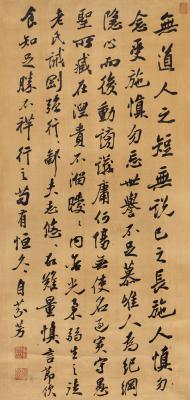 無道人之短無說己之長施人慎勿
念受施慎勿忘世譽不足慕惟仁為紀綱
隱心而後動謗議庸何傷無使名過實守愚
聖所臧在涅貴不淄曖曖內含光柔弱生之徒
老氏誡剛強行行鄙夫志悠悠故難量慎言節飲
食知足勝不祥行之苟有恒久久自芬芳